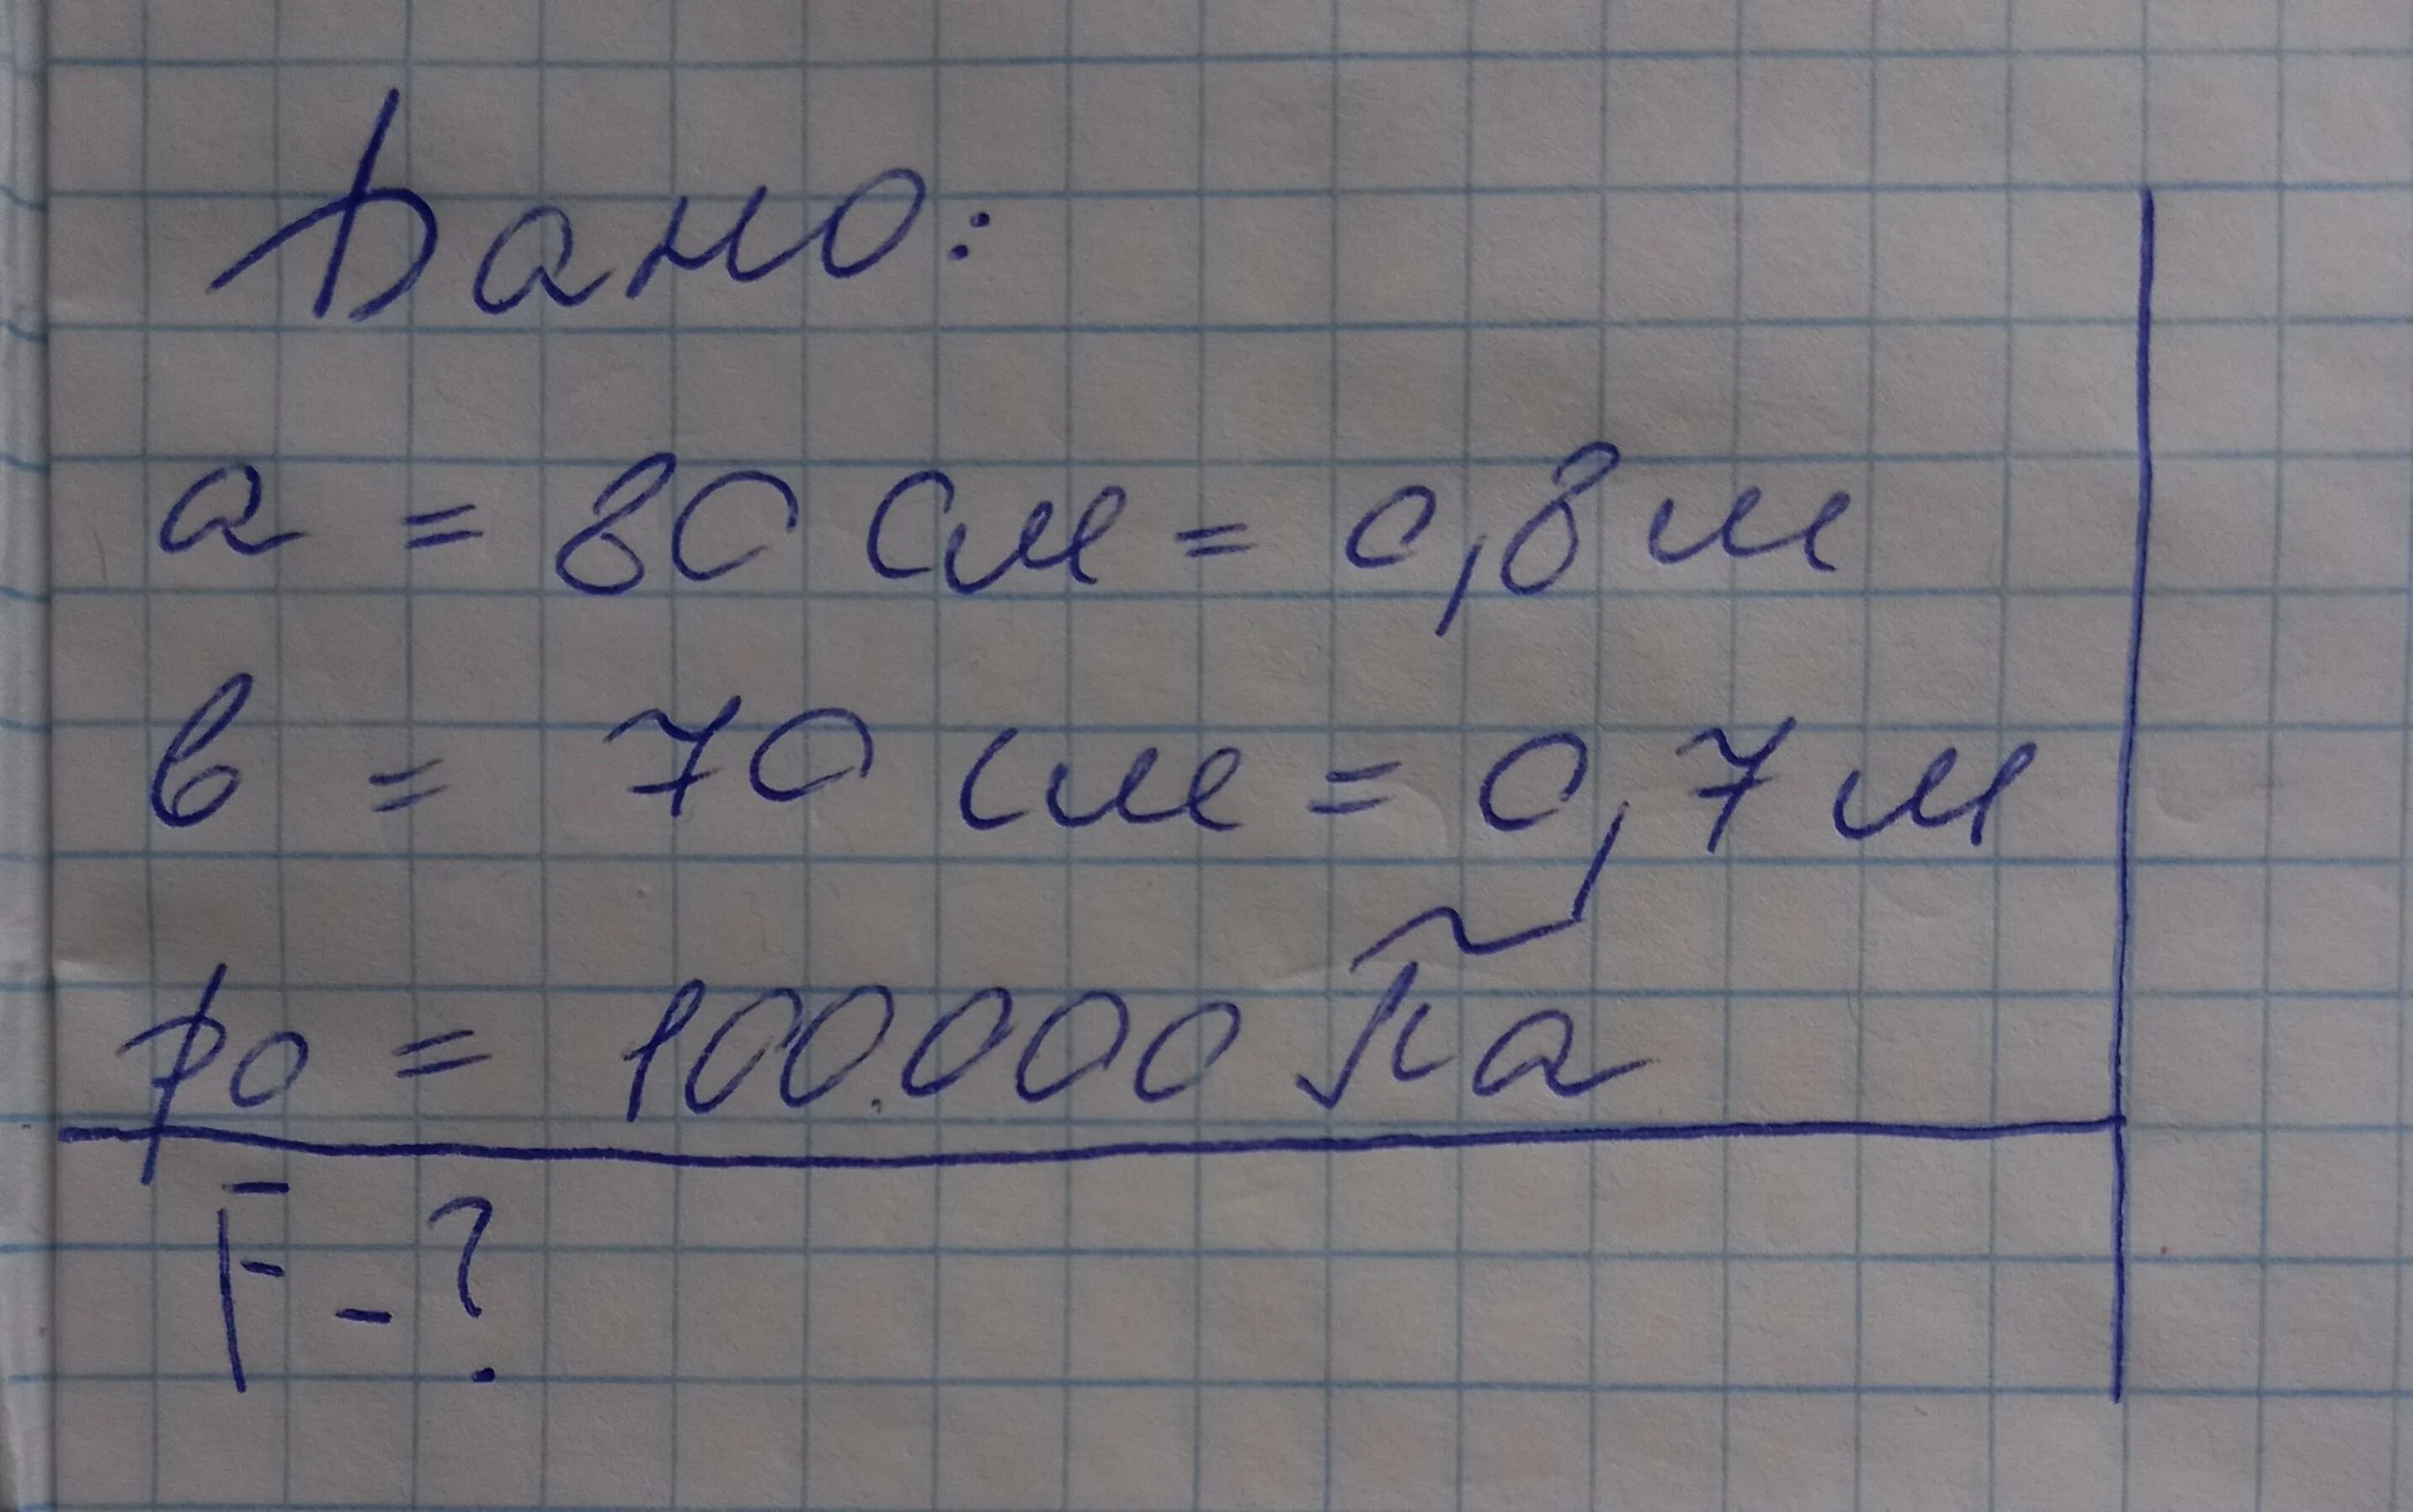 Дано:
a = 80 см = 0,8 м
в = 70 см = 0,7 м
po = 100.000 Па
F - ?